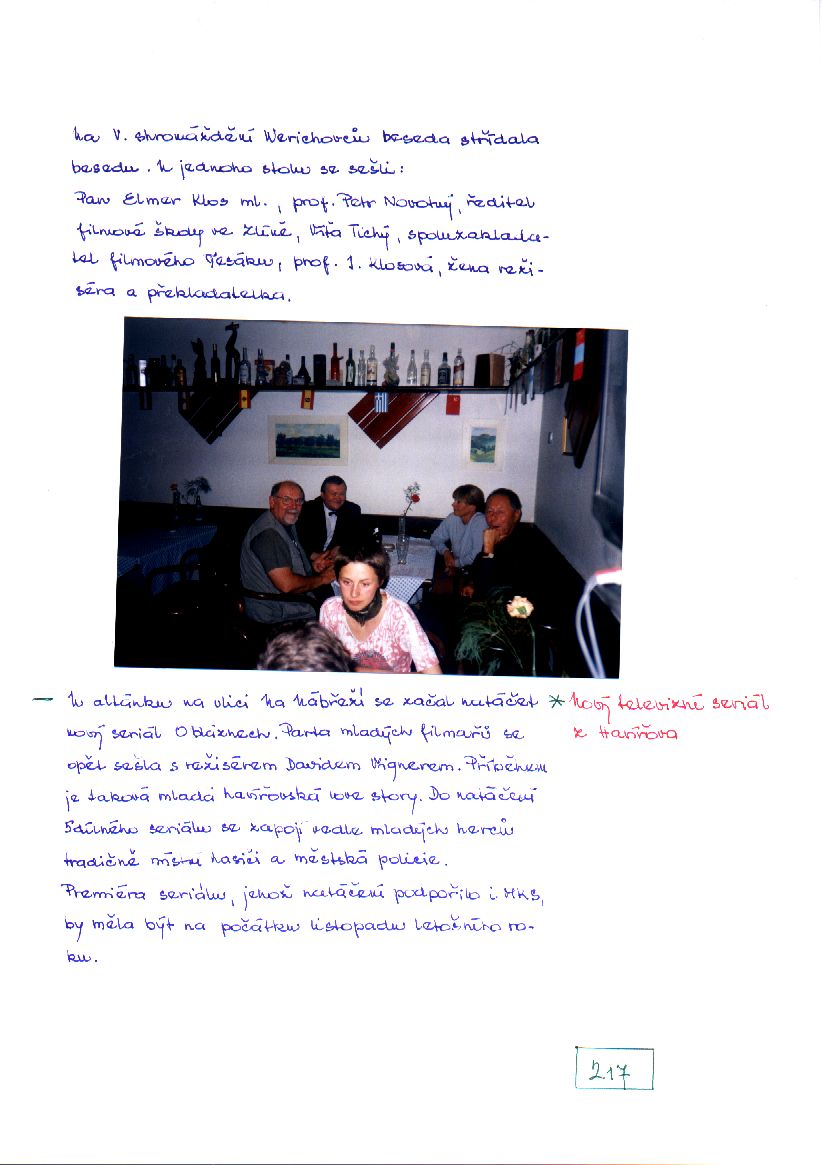 Na V. shromáždění Werichovců beseda střídala
besedu. U jednoho stolu se sešli:
Pan Elmer Klos ml., prof. Petr Novotný, ředitel
filmové školy ve Zlíně, Víťa Tichý, spoluzaklada-
tel filmového Pesáku, prof. I. Klosová, žena reži-
séra a překladatelka.
— V altánku na ulici Na Nábřeží se začal natáčet
nový seriál O bláznech. Parta mladých filmařů se
opět sešla s režisérem Davidem Vignerem. Příběhem
je taková mladá havířovská love story. Do natáčení
5dílného seriálu se zapojí vedle mladých herců
tradičně místní hasiči a městská policie.
Premiéra seriálu, jehož natáčení podpořilo i MKS,
by měla být na počátku listopadu letošního ro-
ku.
* Nový televizní seriál
z Havířova
217